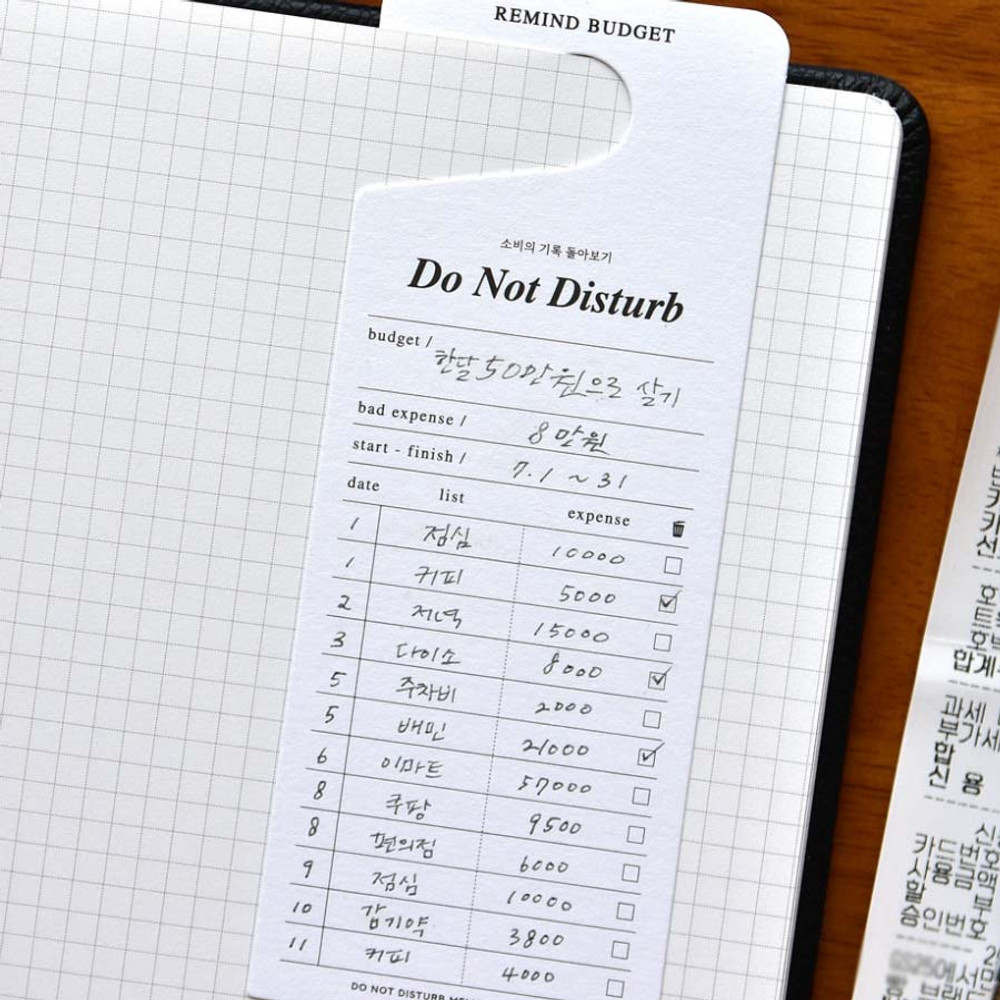 REMIND BUDGET
소비의 기록 돌아보기
Do Not Disturb
budget / 한달 50만원으로 살기
bad expense / 8만원
start - finish / 7.1 ~ 31
date list expense
1 점심 10000
1 커피 5000
2 저녁 15000
3 다이소 8000
5 주차비 2000
5 배민 21000
6 이마트 57000
8 쿠팡 9500
8 편의점 6000
9 점심 10000
10 감기약 3800
11 커피 4000
DO NOT DISTURB
합계
과세
부가세
합
신 용
카드번호
사용금액
할 부
승인번호